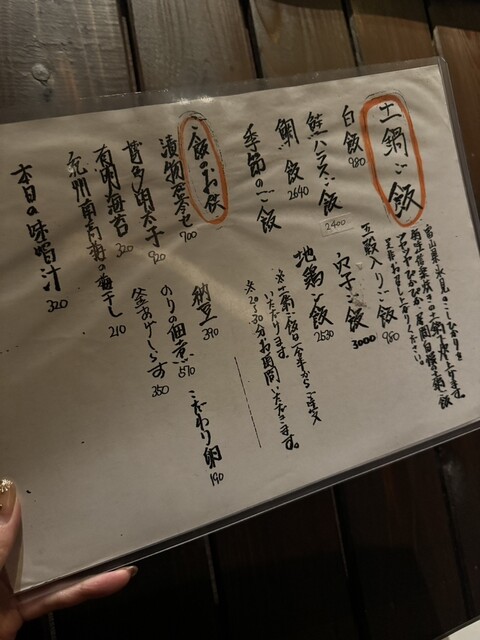 土鍋ご飯
富山県氷見のこしひかりを
信楽焼きの土鍋で炊上げます。
白飯 980
五穀入りご飯 980
鮭ハラスご飯 2400
穴子ご飯 3000
鯛ご飯 2640
地鶏ご飯 2530
季節のご飯
※土鍋ご飯は一合半からご注文
いただけます。
※20~30分お時間いただきます。
ご飯のお供
漬物盛合せ 900
納豆 390
博多明太子 920
のりの佃煮 570
こだわり卵 190
有明海苔 320
釜あげしらす 350
紀州南高梅の梅干し 210
本日の味噌汁 320